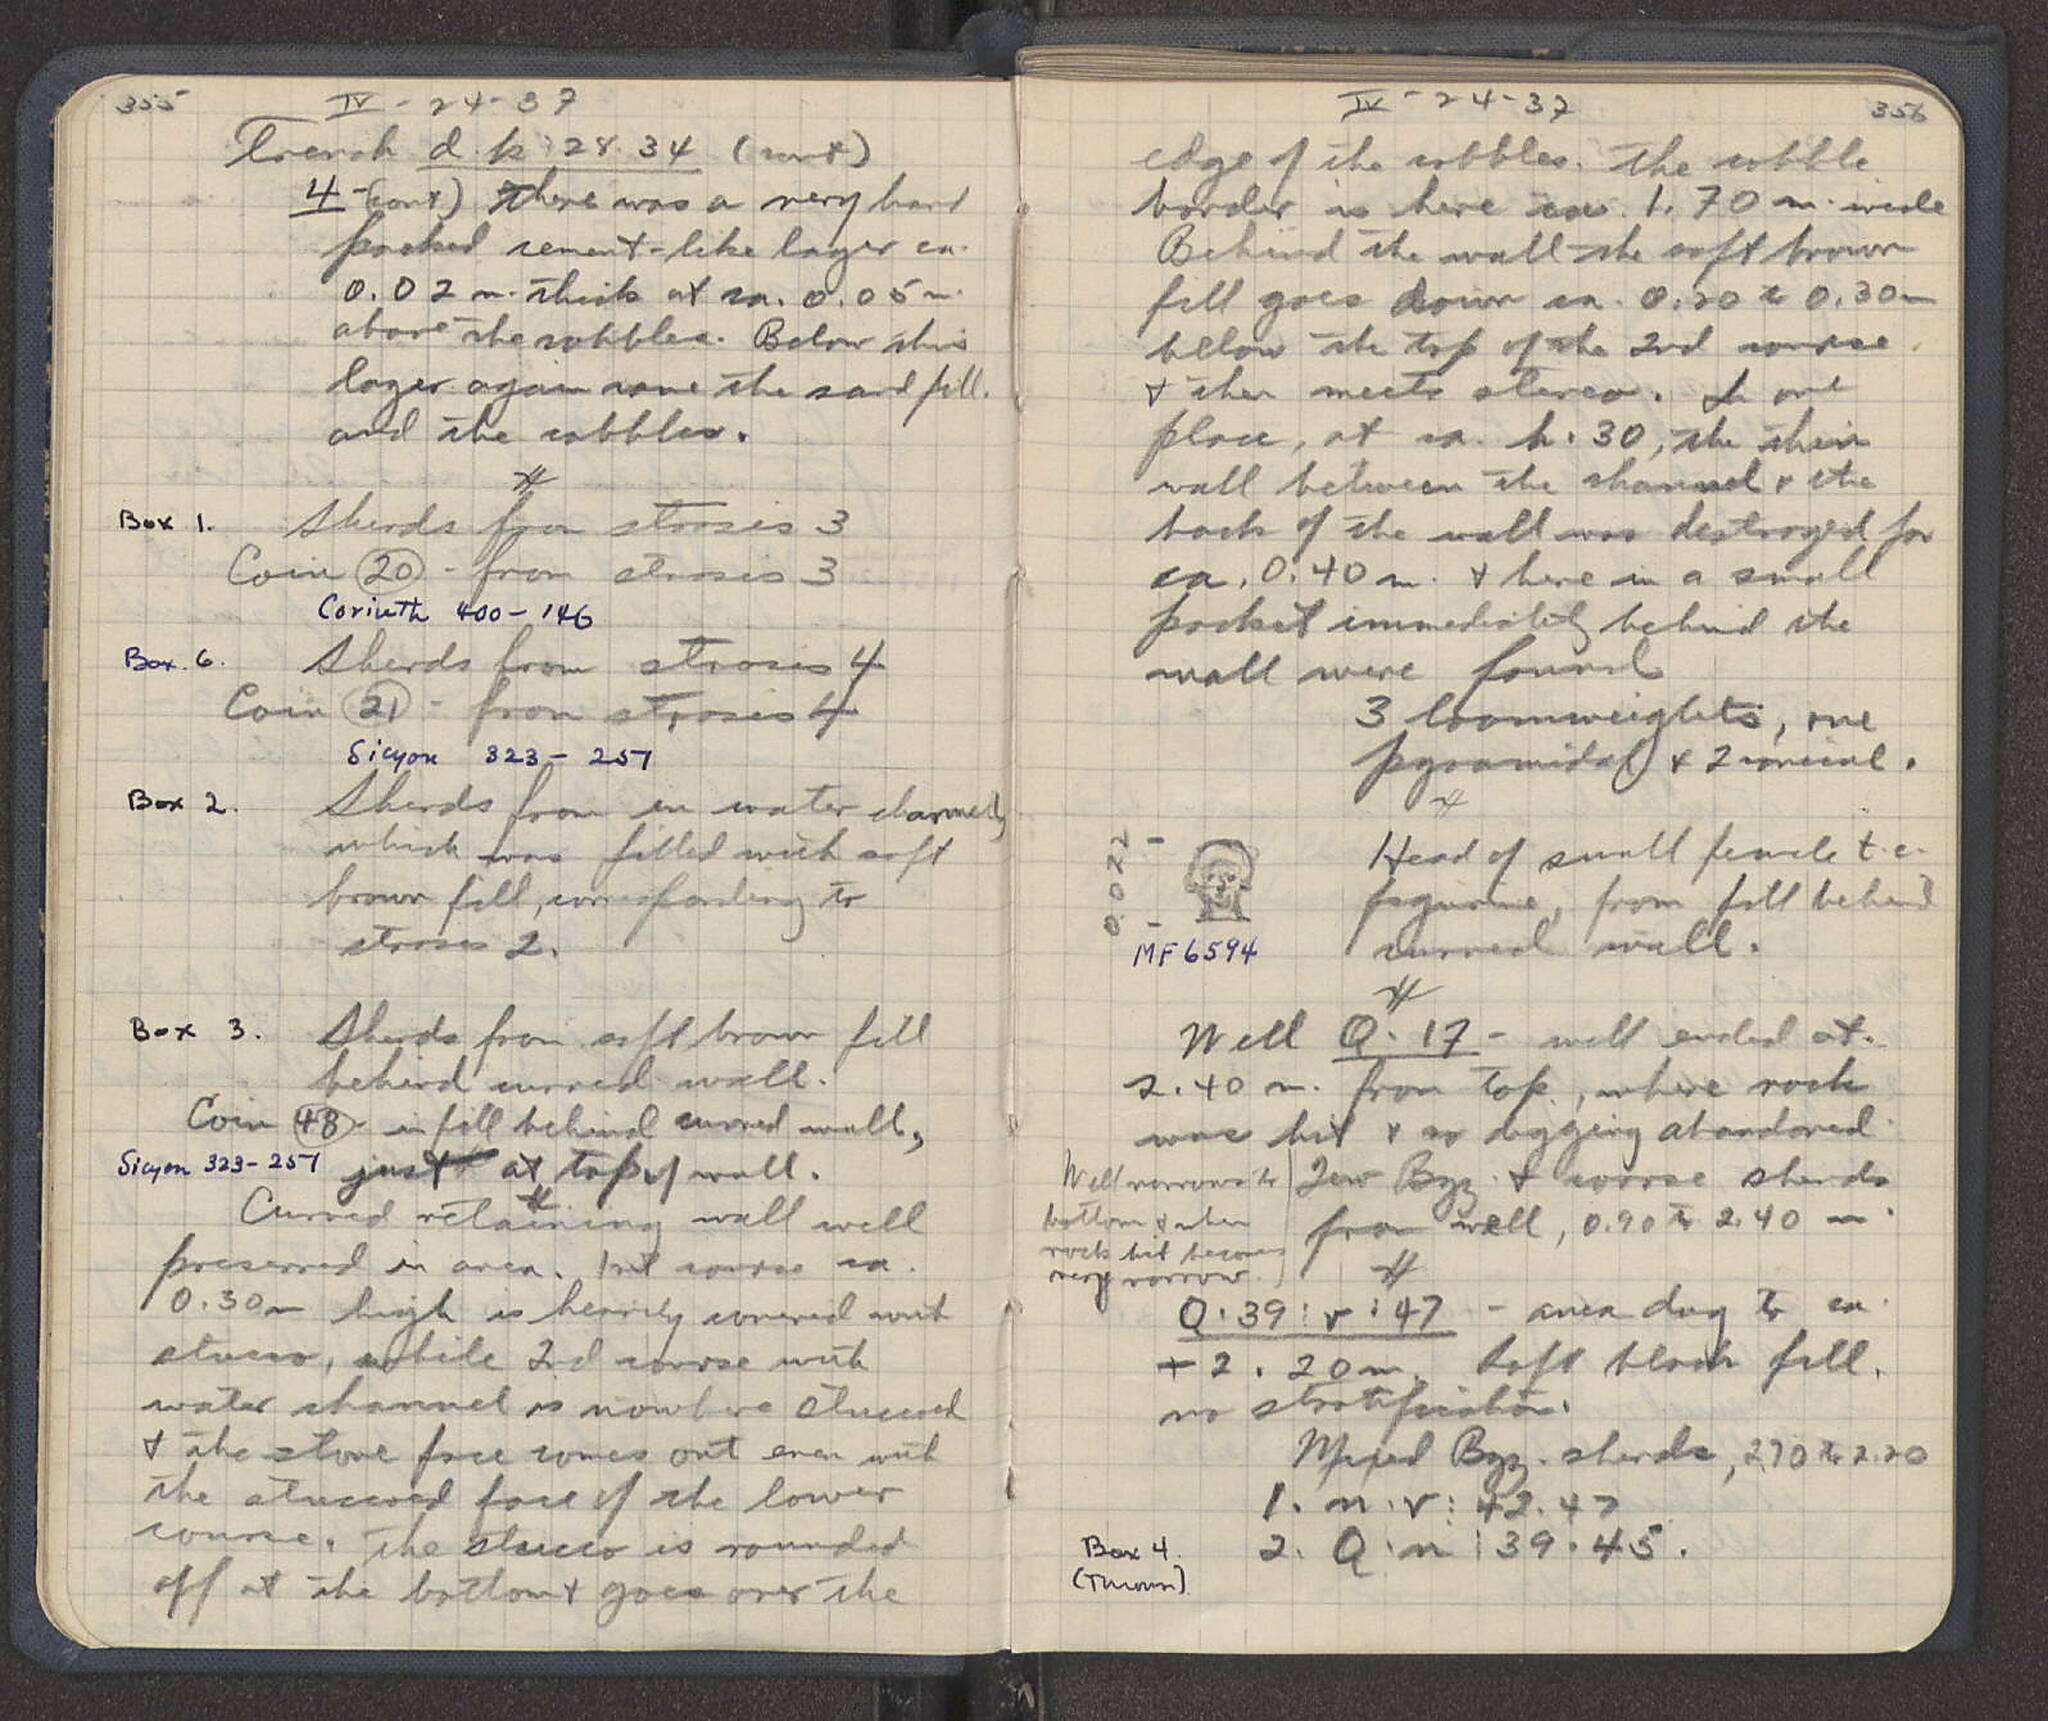 355
IV - 24 - 37
Trench d.k:28.34 (cont)
4 - (cont) There was a very hard
packed cement-like layer ca.
0.02 m. thick at ca. 0.05 m.
above the cobbles. Below this
layer again came the sand fill.
and the cobbles.
Box 1. Sherds from strosis 3
Coin 20 - from strosis 3
Corinth 400 - 146
Box. 6. Sherds from strosis 4
Coin 21 - from strosis 4
Sicyon 323 - 251
Box 2. Sherds from in water channel,
which was filled with soft
brown fill, corresponding to
strosis 2.
Box 3. Sherds from soft brown fill
behind curved wall.
Coin 48 - in fill behind curved wall,
Sicyon 323 - 251 just at top of wall.
Curved retaining wall well
preserved in area. 1st course ca.
0.30 m high is heavily covered with
stucco, while 2nd course with
water channel is nowhere stuccoed
& the stone face comes out even with
the stuccoed face of the lower
course. The stucco is rounded
off at the bottom & goes over the
IV - 24 - 37
356
edge of the cobbles. The cobble
border is here ca. 1.70 m. wide
Behind the wall the soft brown
fill goes down ca. 0.20 to 0.30 m
below the top of the 2nd course
& then meets stereo. In one
place, at ca. h.30, the thin
wall between the channel & the
back of the wall was destroyed for
ca. 0.40 m. & here in a small
pocket immediately behind the
wall were found
3 loomweights, one
pyramidal & 2 conical.
0.022
Head of small female t.c.
figurine, from fill behind
curved wall.
MF 6594
Well Q.17 - well ended at
2.40 m. from top, where rock
was hit & so digging abandoned
Few Byz. & coarse sherds
from well, 0.90 to 2.40 m.
Well narrows to
bottom & when
rock hit becomes
very narrow.
Q.39:v:47 - area dug to ca.
+2.20 m. Soft black fill.
no stratification.
Mixed Byz. sherds, 2.70 to 2.20
1. n.v:42.47
2. Q.n:39.45.
Box 4.
(Thrown)